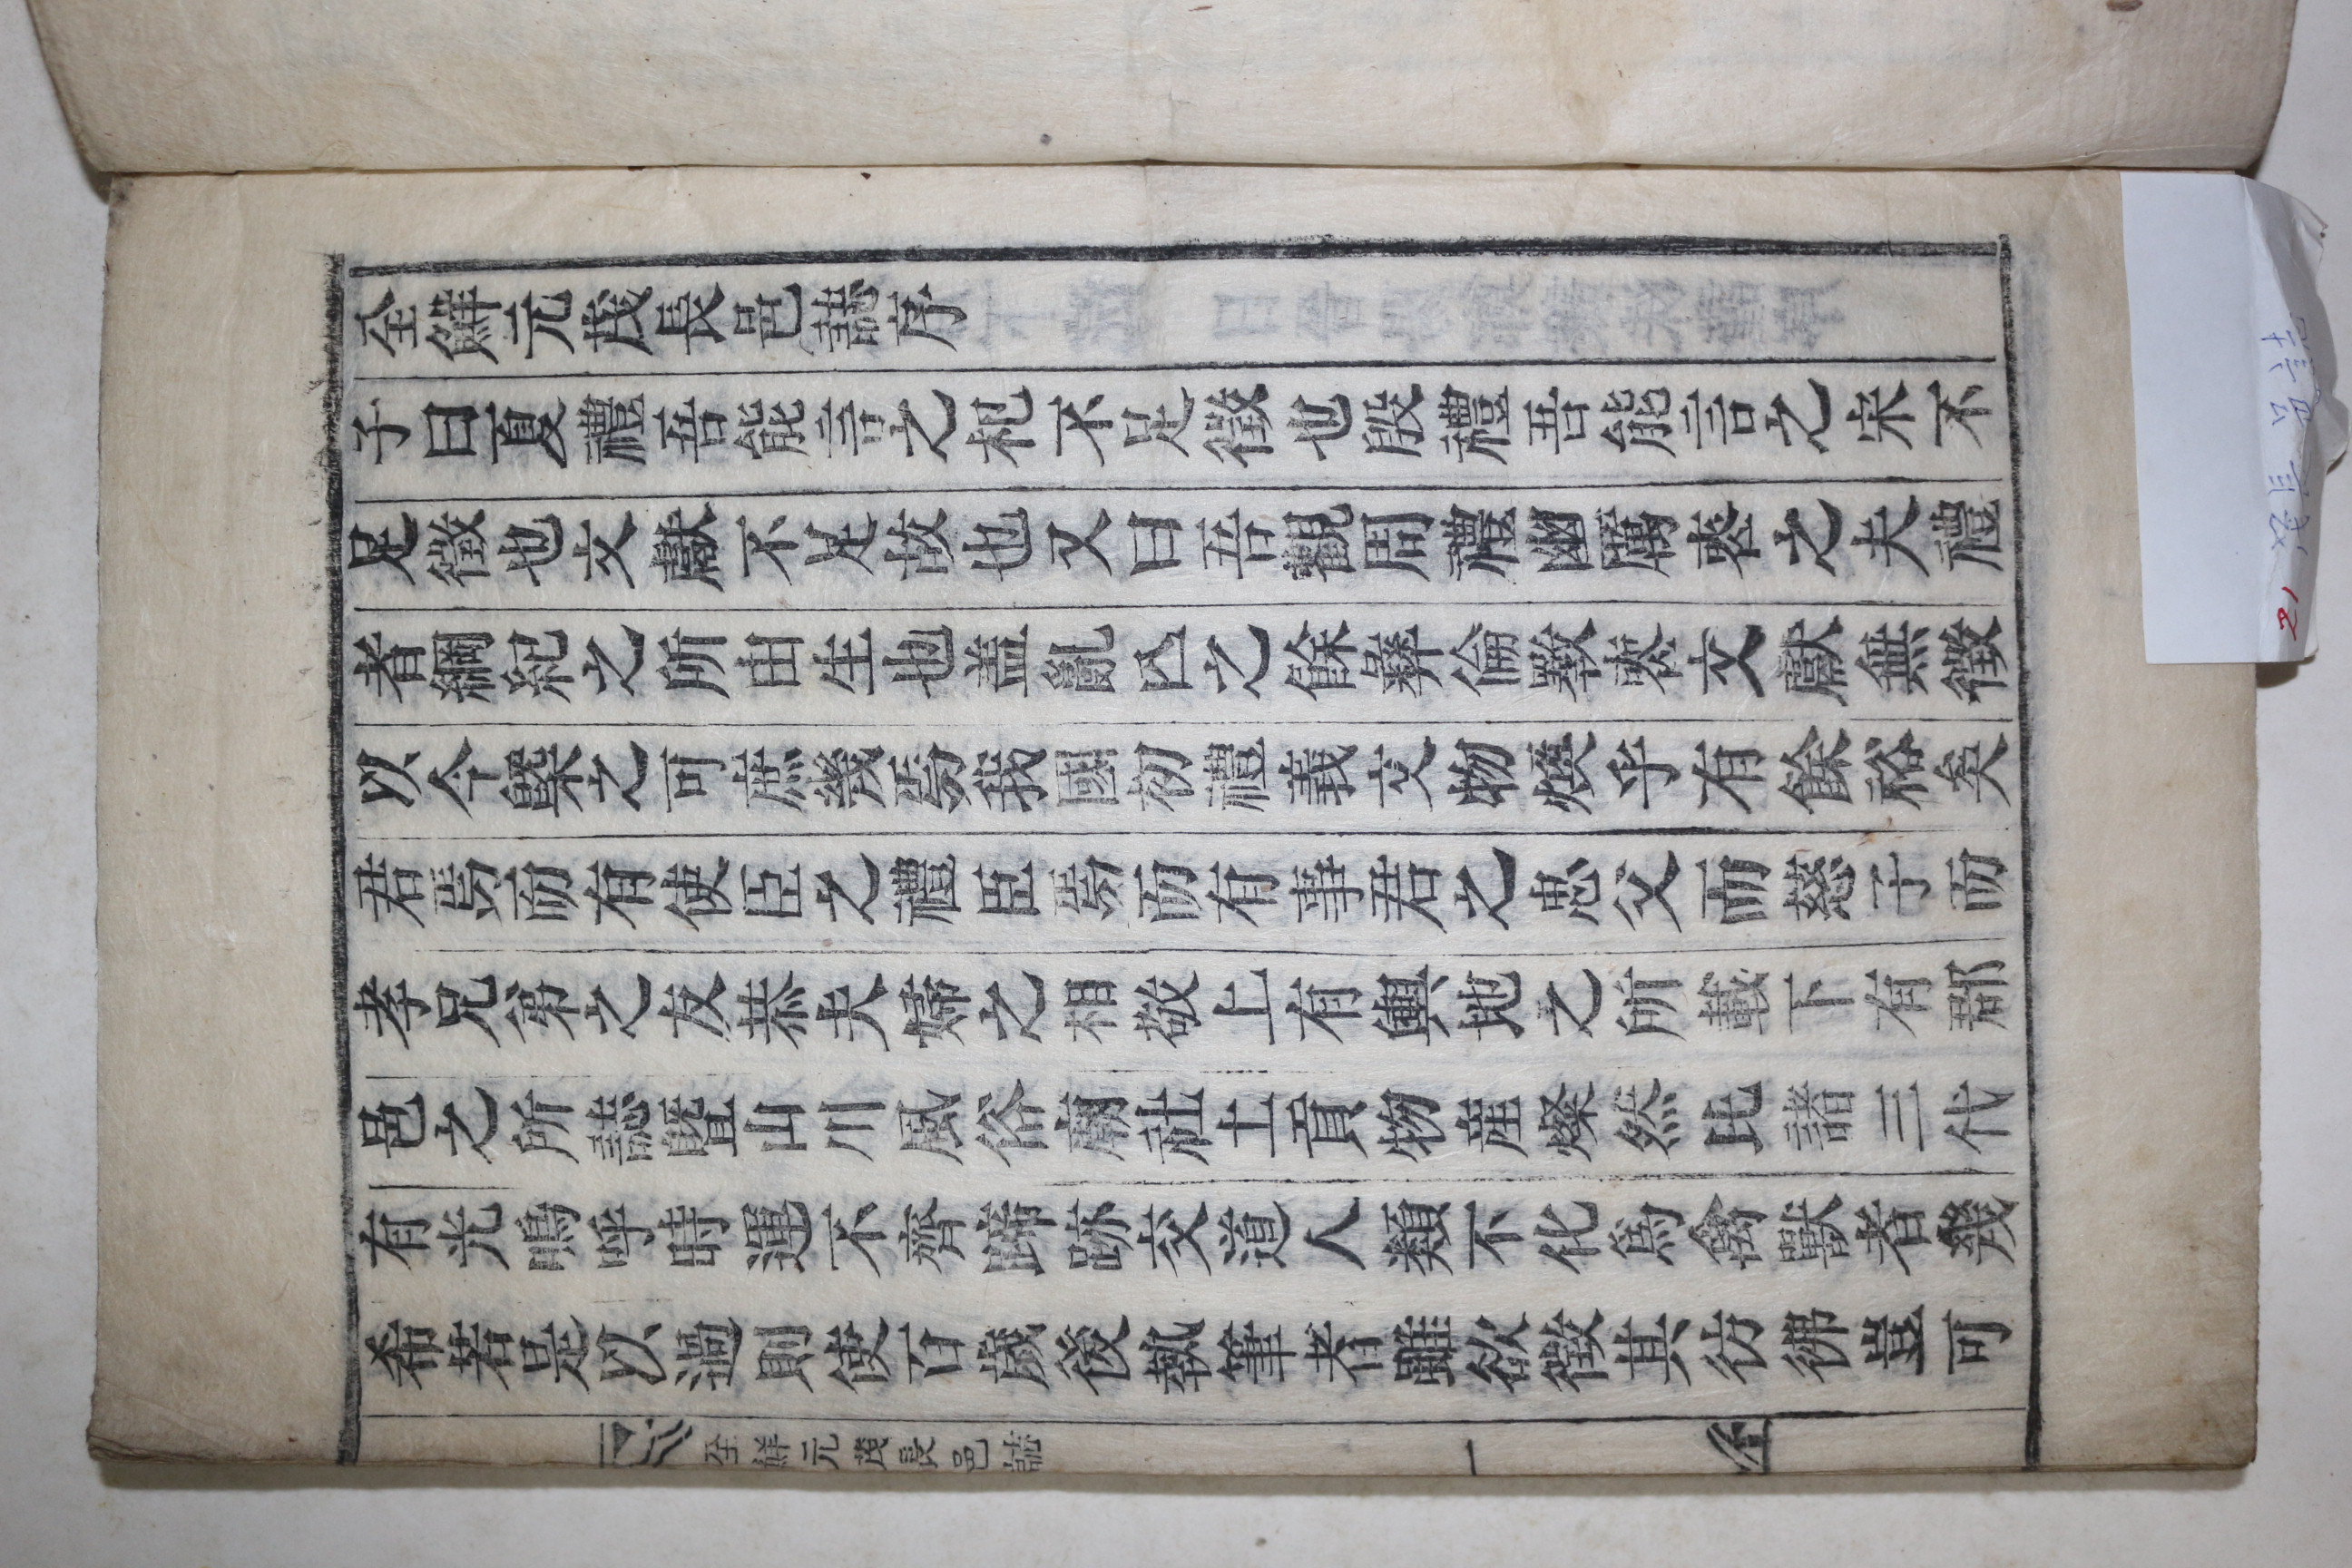 全鮮元茂長邑誌序
子曰夏禮吾能言之杞不足徵也殷禮吾能言之宋不
足徵也文獻不足故也又曰吾觀周禮幽厲喪之夫禮
者綱紀之所由生也盖亂亾之餘彝倫斁喪文獻無徵
以今槩之可庶幾焉我國初禮義文物煥乎有餘裕矣
君焉而有使臣之禮臣焉而有事君之忠父而慈子而
孝兄弟之友恭夫婦之相敬上有輿地之所載下有郡
邑之所誌曁山川風俗廟社土貢物産燦然比諸三代
有光嗚呼時運不齊蹄跡交道人類不化爲禽獸者幾
希若是以過則使百歲後執筆者雖欲徵其彷彿豈可
全鮮元茂長邑誌
一
21 茂長邑誌